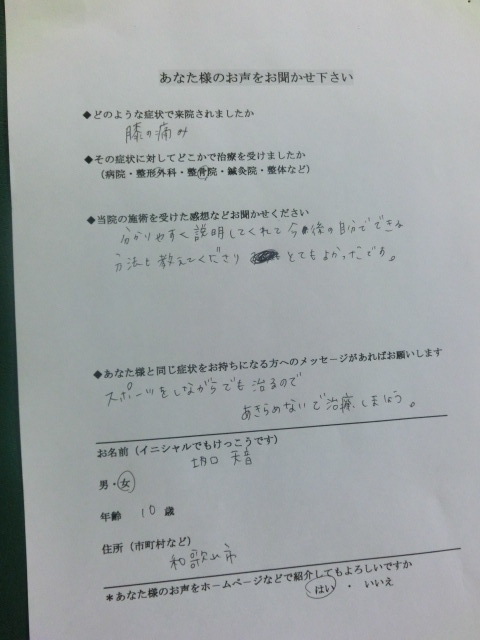 あなた様のお声をお聞かせ下さい
◆どのような症状で来院されましたか
膝の痛み
◆その症状に対してどこかで治療を受けましたか
(病院・整形外科・整骨院・鍼灸院・整体など)
◆当院の施術を受けた感想などお聞かせください
分かりやすく説明してくれて今後の自分でできる
方法も教えてくださり とてもよかったです。
◆あなた様と同じ症状をお持ちになる方へのメッセージがあればお願いします
スポーツをしながらでも治るので
あきらめないで治療しましょう。
お名前(イニシャルでもけっこうです)
坂口 天音
男・女
年齢 10 歳
住所(市町村など)
和歌山市
*あなた様のお声をホームページなどで紹介してもよろしいですか
はい ・ いいえ